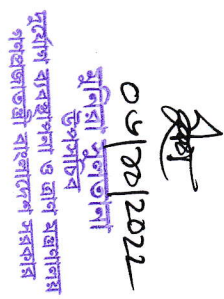 মুনিরা সুলতানা
উপসচিব
দুর্যোগ ব্যবস্থাপনা ও ত্রাণ মন্ত্রণালয়
গণপ্রজাতন্ত্রী বাংলাদেশ সরকার